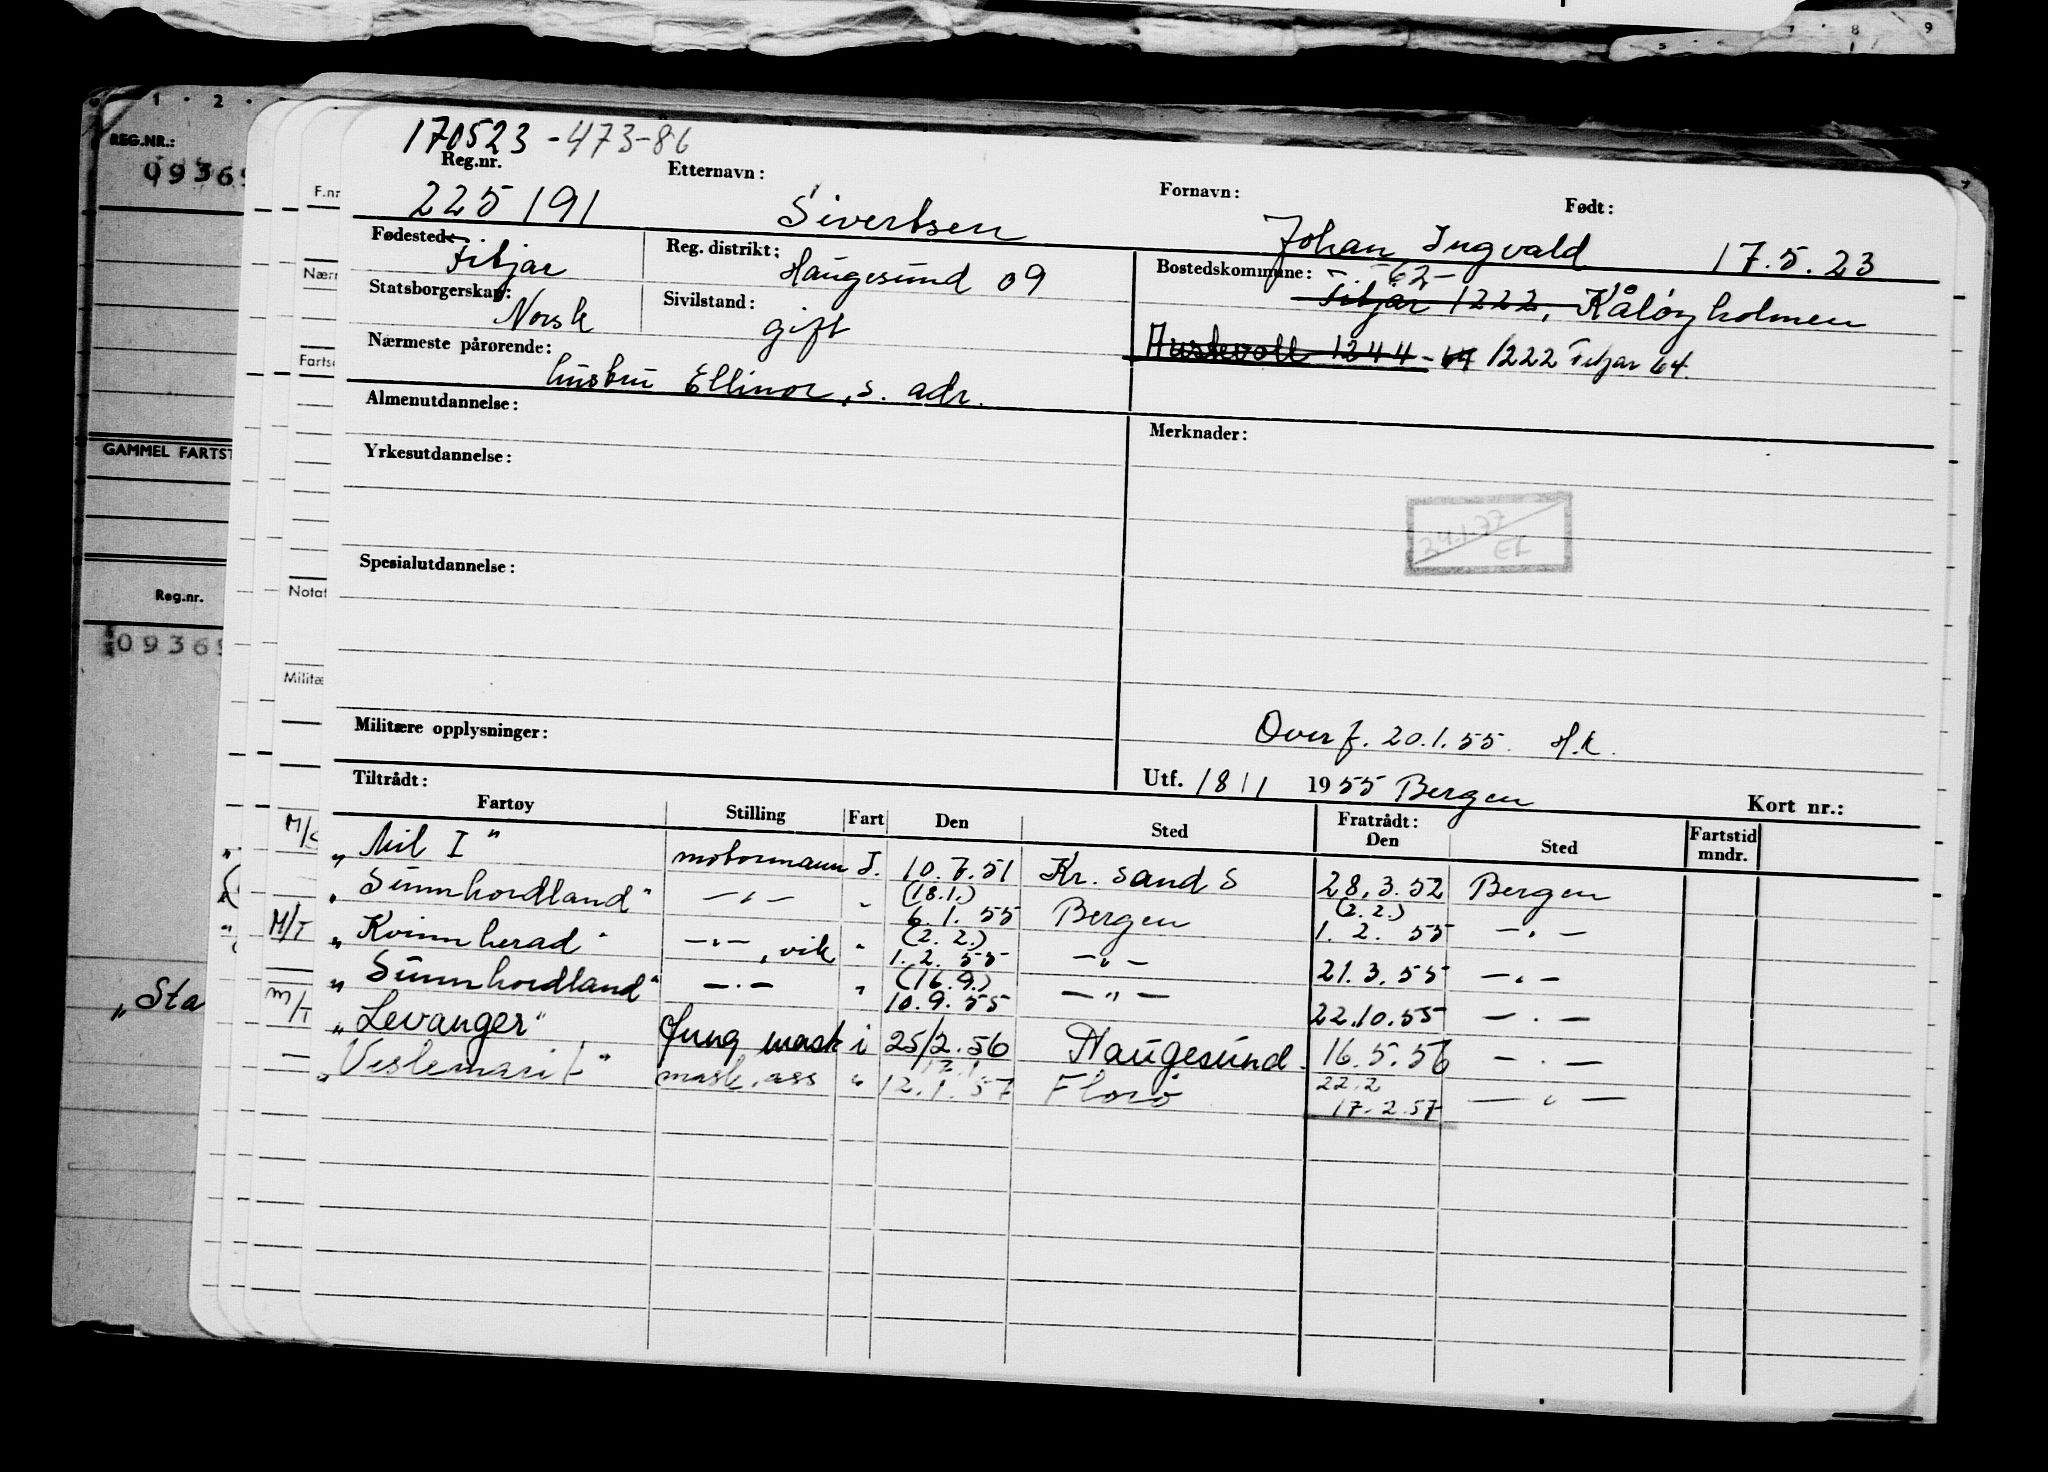 7 8 9
5
1 · 2 ·
REG.NR.:
0936
GAMMEL FARTST
Reg.nr.
0936
„Sta
F.nr
Nærn
Fartsc
Notat
Militæ
M/
M/T
m/T
170523-473-86
Reg.nr. Etternavn: Fornavn: Født:
225191 Sivertsen Johan Ingvald 17.5.23
Fødested: Fitjar Reg. distrikt: Haugesund 09 Bostedskommune: -62-
Fitjar 1222, Kåløyholmen
Statsborgerskap: Norsk Sivilstand: gift
Austevoll 1244 - 64 1222 Fitjar 64.
Nærmeste pårørende: hustru Ellinor, s. adr.
Almenutdannelse: Merknader:
Yrkesutdannelse:
24.1.77
EL
Spesialutdannelse:
Militære opplysninger: Overf. 20.1.55. H.K.
Utf. 18/1 1955 Bergen Kort nr.:
Tiltrådt: Fratrådt:
Fartøy Stilling Fart Den Sted Den Sted Fartstid mndr.
„Mil I" motormann I. 10.7.51 Kr. sand S 28.3.52 Bergen
„Sunnhordland" —"— " (18.1.) 6.1.55 Bergen (2.2.) 1.2.55 —"—
„Kvinnherad" —"—, vik " (2.2.) 1.2.55 —"— 21.3.55 —"—
„Sunnhordland" —"— " (16.9.) 10.9.55 —"— 22.10.55 —"—
„Levanger" fung mask i 25/2.56 Haugesund 16.5.56 —"—
„Veslemari I" mask.ass " 12.1.57 Florø 22.2 17.2.57 —"—